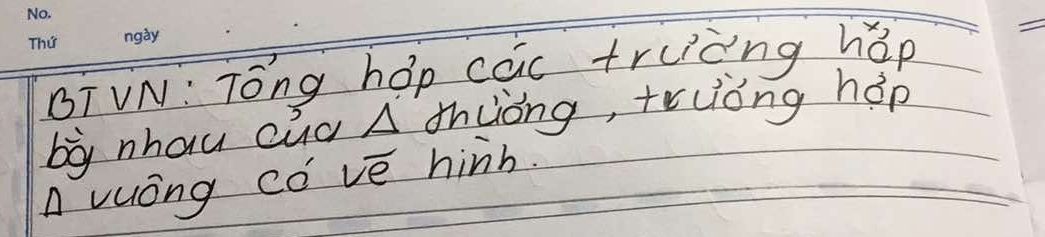 No.
Thứ ngày
BTVN: Tổng hợp các trường hợp
bg nhau của Δ thường, trường hợp
Δ vuông có vẽ hình.